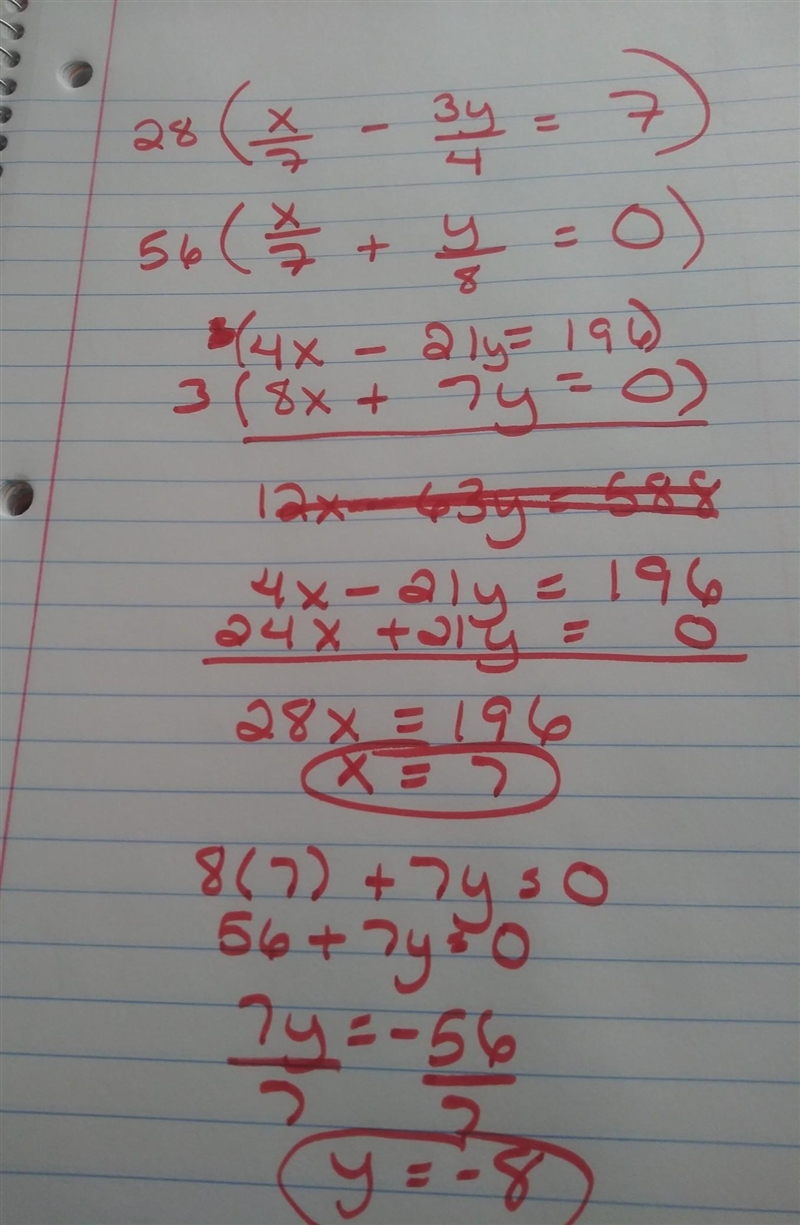 28 ( x/7 - 3y/4 = 7 )
56 ( x/7 + y/8 = 0 )
(4x - 21y = 196)
3 (8x + 7y = 0)
12x - 63y = 588
4x - 21y = 196
24x + 21y = 0
28x = 196
x = 7
8(7) + 7y = 0
56 + 7y = 0
7y/7 = -56/7
y = -8